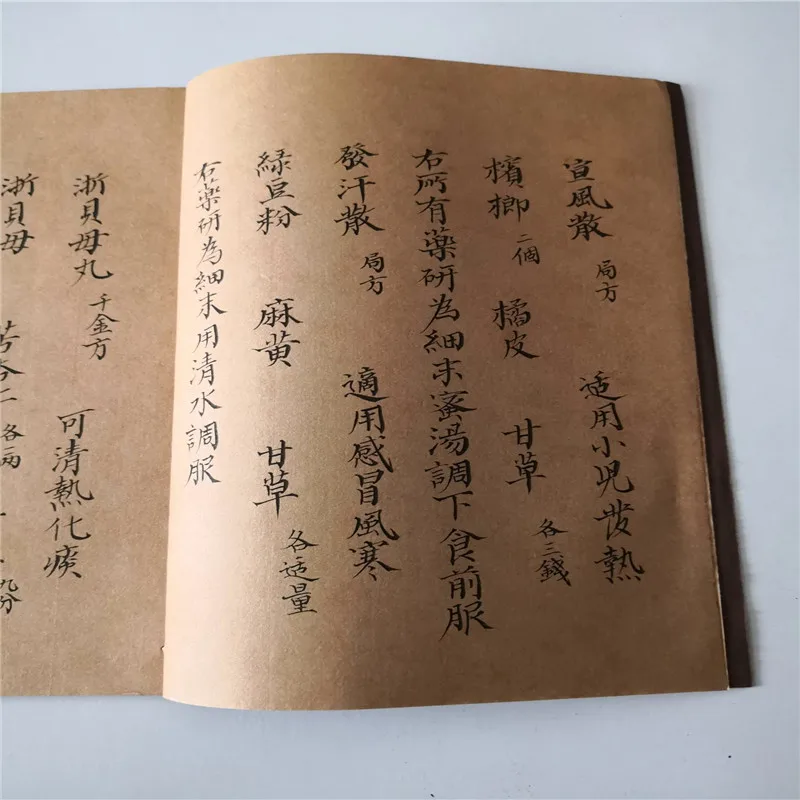 宣風散 局方 适用小児發熱
檳榔 二個 橘皮 甘草 各三錢
右所有藥研為細末蜜湯調下食前服
發汗散 局方 適用感冒風寒
綠豆粉 麻黄 甘草 各适量
右藥研為細末用清水調服
浙貝母丸 千金方 可清熱化痰
浙貝母 苦参二 各兩